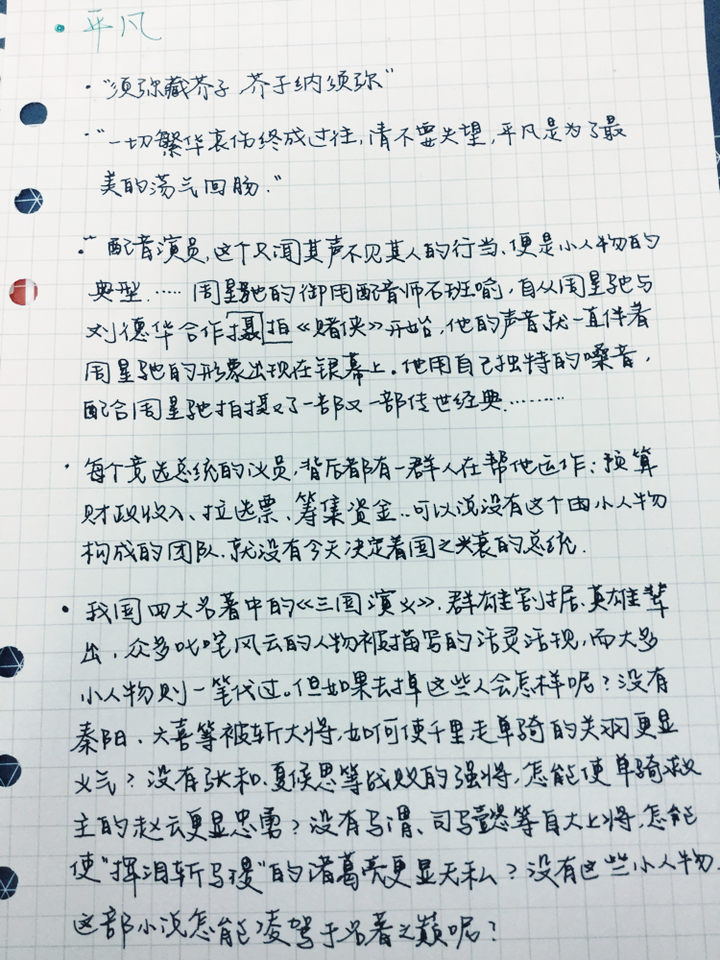 • 平凡
• "须弥藏芥子,芥子纳须弥"
• "一切繁华哀伤终成过往,请不要失望,平凡是为了最
美的荡气回肠."
• 配音演员,这个只闻其声不见其人的行当,便是小人物的
典型.…… 周星驰的御用配音师石班瑜,自从周星驰与
刘德华合作摄拍《赌侠》开始,他的声音就一直伴着
周星驰的形象出现在银幕上。他用自己独特的嗓音,
配合周星驰拍摄了一部又一部传世经典.………
• 每个竞选总统的议员,背后都有一群人在帮他运作:预算
财政收入、拉选票、筹集资金..可以说没有这个由小人物
构成的团队.就没有今天决定着国之兴衰的总统.
• 我国四大名著中的《三国演义》.群雄割据.英雄辈
出,众多叱咤风云的人物被描写的活灵活现,而大多
小人物则一笔代过。但如果去掉这些人会怎样呢?没有
秦阳、大喜等被斩大将,如何使千里走单骑的关羽更显
义气?没有张和、夏候思等战败的强将,怎能使单骑救
主的赵云更显忠勇?没有马谓、司马懿等自大上将,怎能
使"挥泪斩马谡"的诸葛亮更显无私?没有这些小人物.
这部小说怎能凌驾于名著之巅呢?